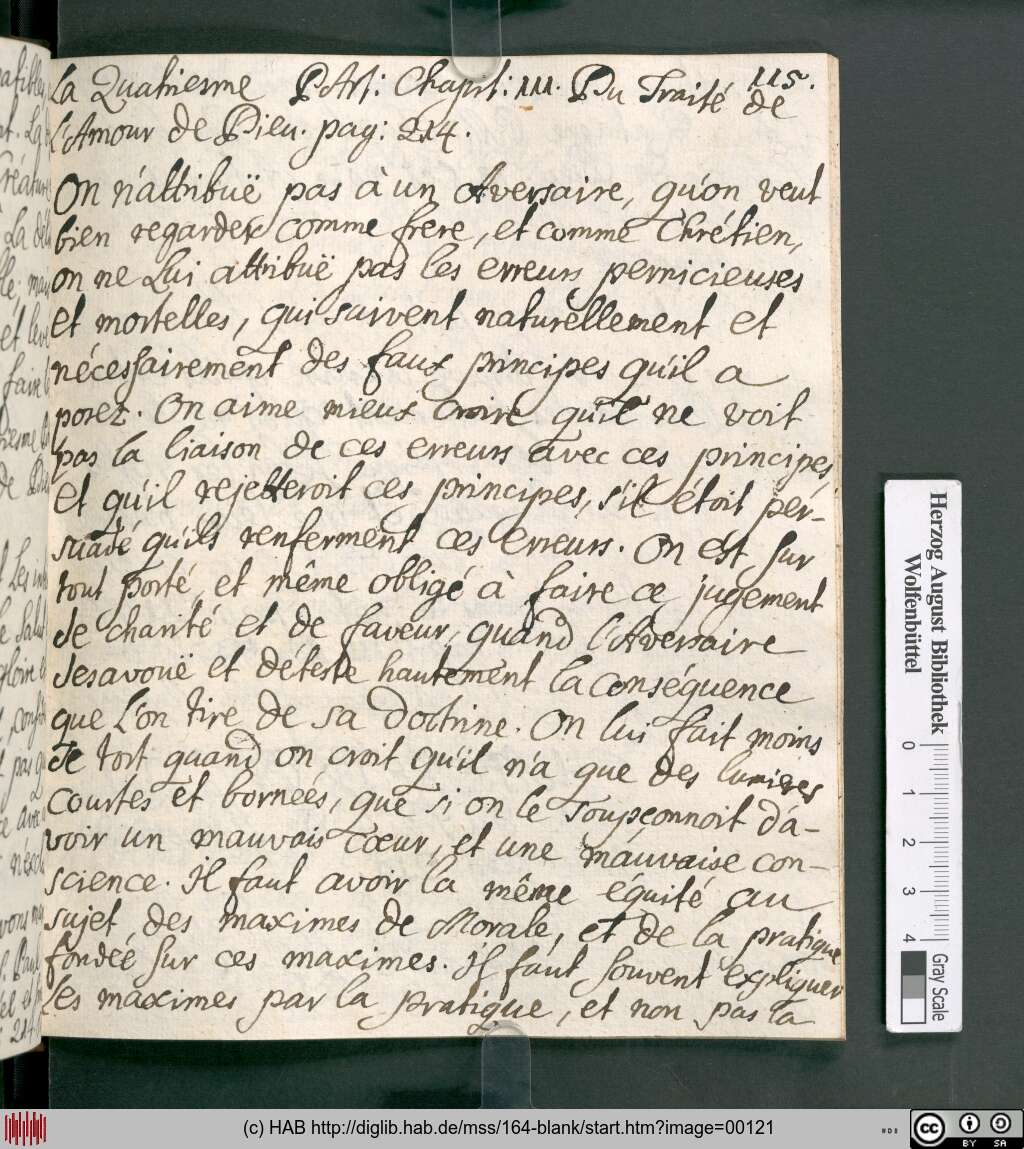 115.
La Quatriesme PArt: Chapit: III. Du Traité de
l'Amour de Dieu. pag: 214.
On n'attribuë pas à un Aversaire, qu'on veut
bien regarder comme frere, et comme Chrétien,
on ne Lui attribuë pas les erreurs pernicieuses
et mortelles, qui suivent naturellement et
nécessairement des faux principes qu'il a
posez. On aime mieux croire qu'il ne voit
pas la liaison de ces erreurs avec ces principes,
et qu'il rejetteroit ces principes, s'il étoit per-
suadé qu'ils renferment ces erreurs. On est sur
tout porté, et même obligé à faire ce jugement
de charité et de faveur, quand l'Aversaire
desavouë et déteste hautement la conséquence
que L'on tire de sa doctrine. On lui fait moins
de tort quand on croit qu'il n'a que des lumieres
courtes et bornées, que si on le soupçonnoit d'a-
voir un mauvais cœur, et une mauvaise con-
science. Il faut avoir la même équité au
sujet, des maximes de Morale, et de la pratique
fondée sur ces maximes. Il faut souvent expliquer
les maximes par la pratique, et non pas la
Herzog August Bibliothek
Wolfenbüttel
0 1 2 3 4
Gray Scale
(c) HAB http://diglib.hab.de/mss/164-blank/start.htm?image=00121
cc BY SA